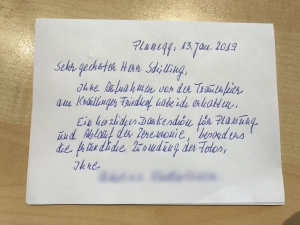 Planegg, 13. Jan. 2019
Sehr geehrter Herr Schilling,
Ihre Aufnahmen von der Trauerfeier
am Kraillinger Friedhof habe ich erhalten.
Ein herzliches Dankeschön für Planung
und Ablauf der Zeremonie, besonders
die freundliche Zusendung der Fotos.
Ihre